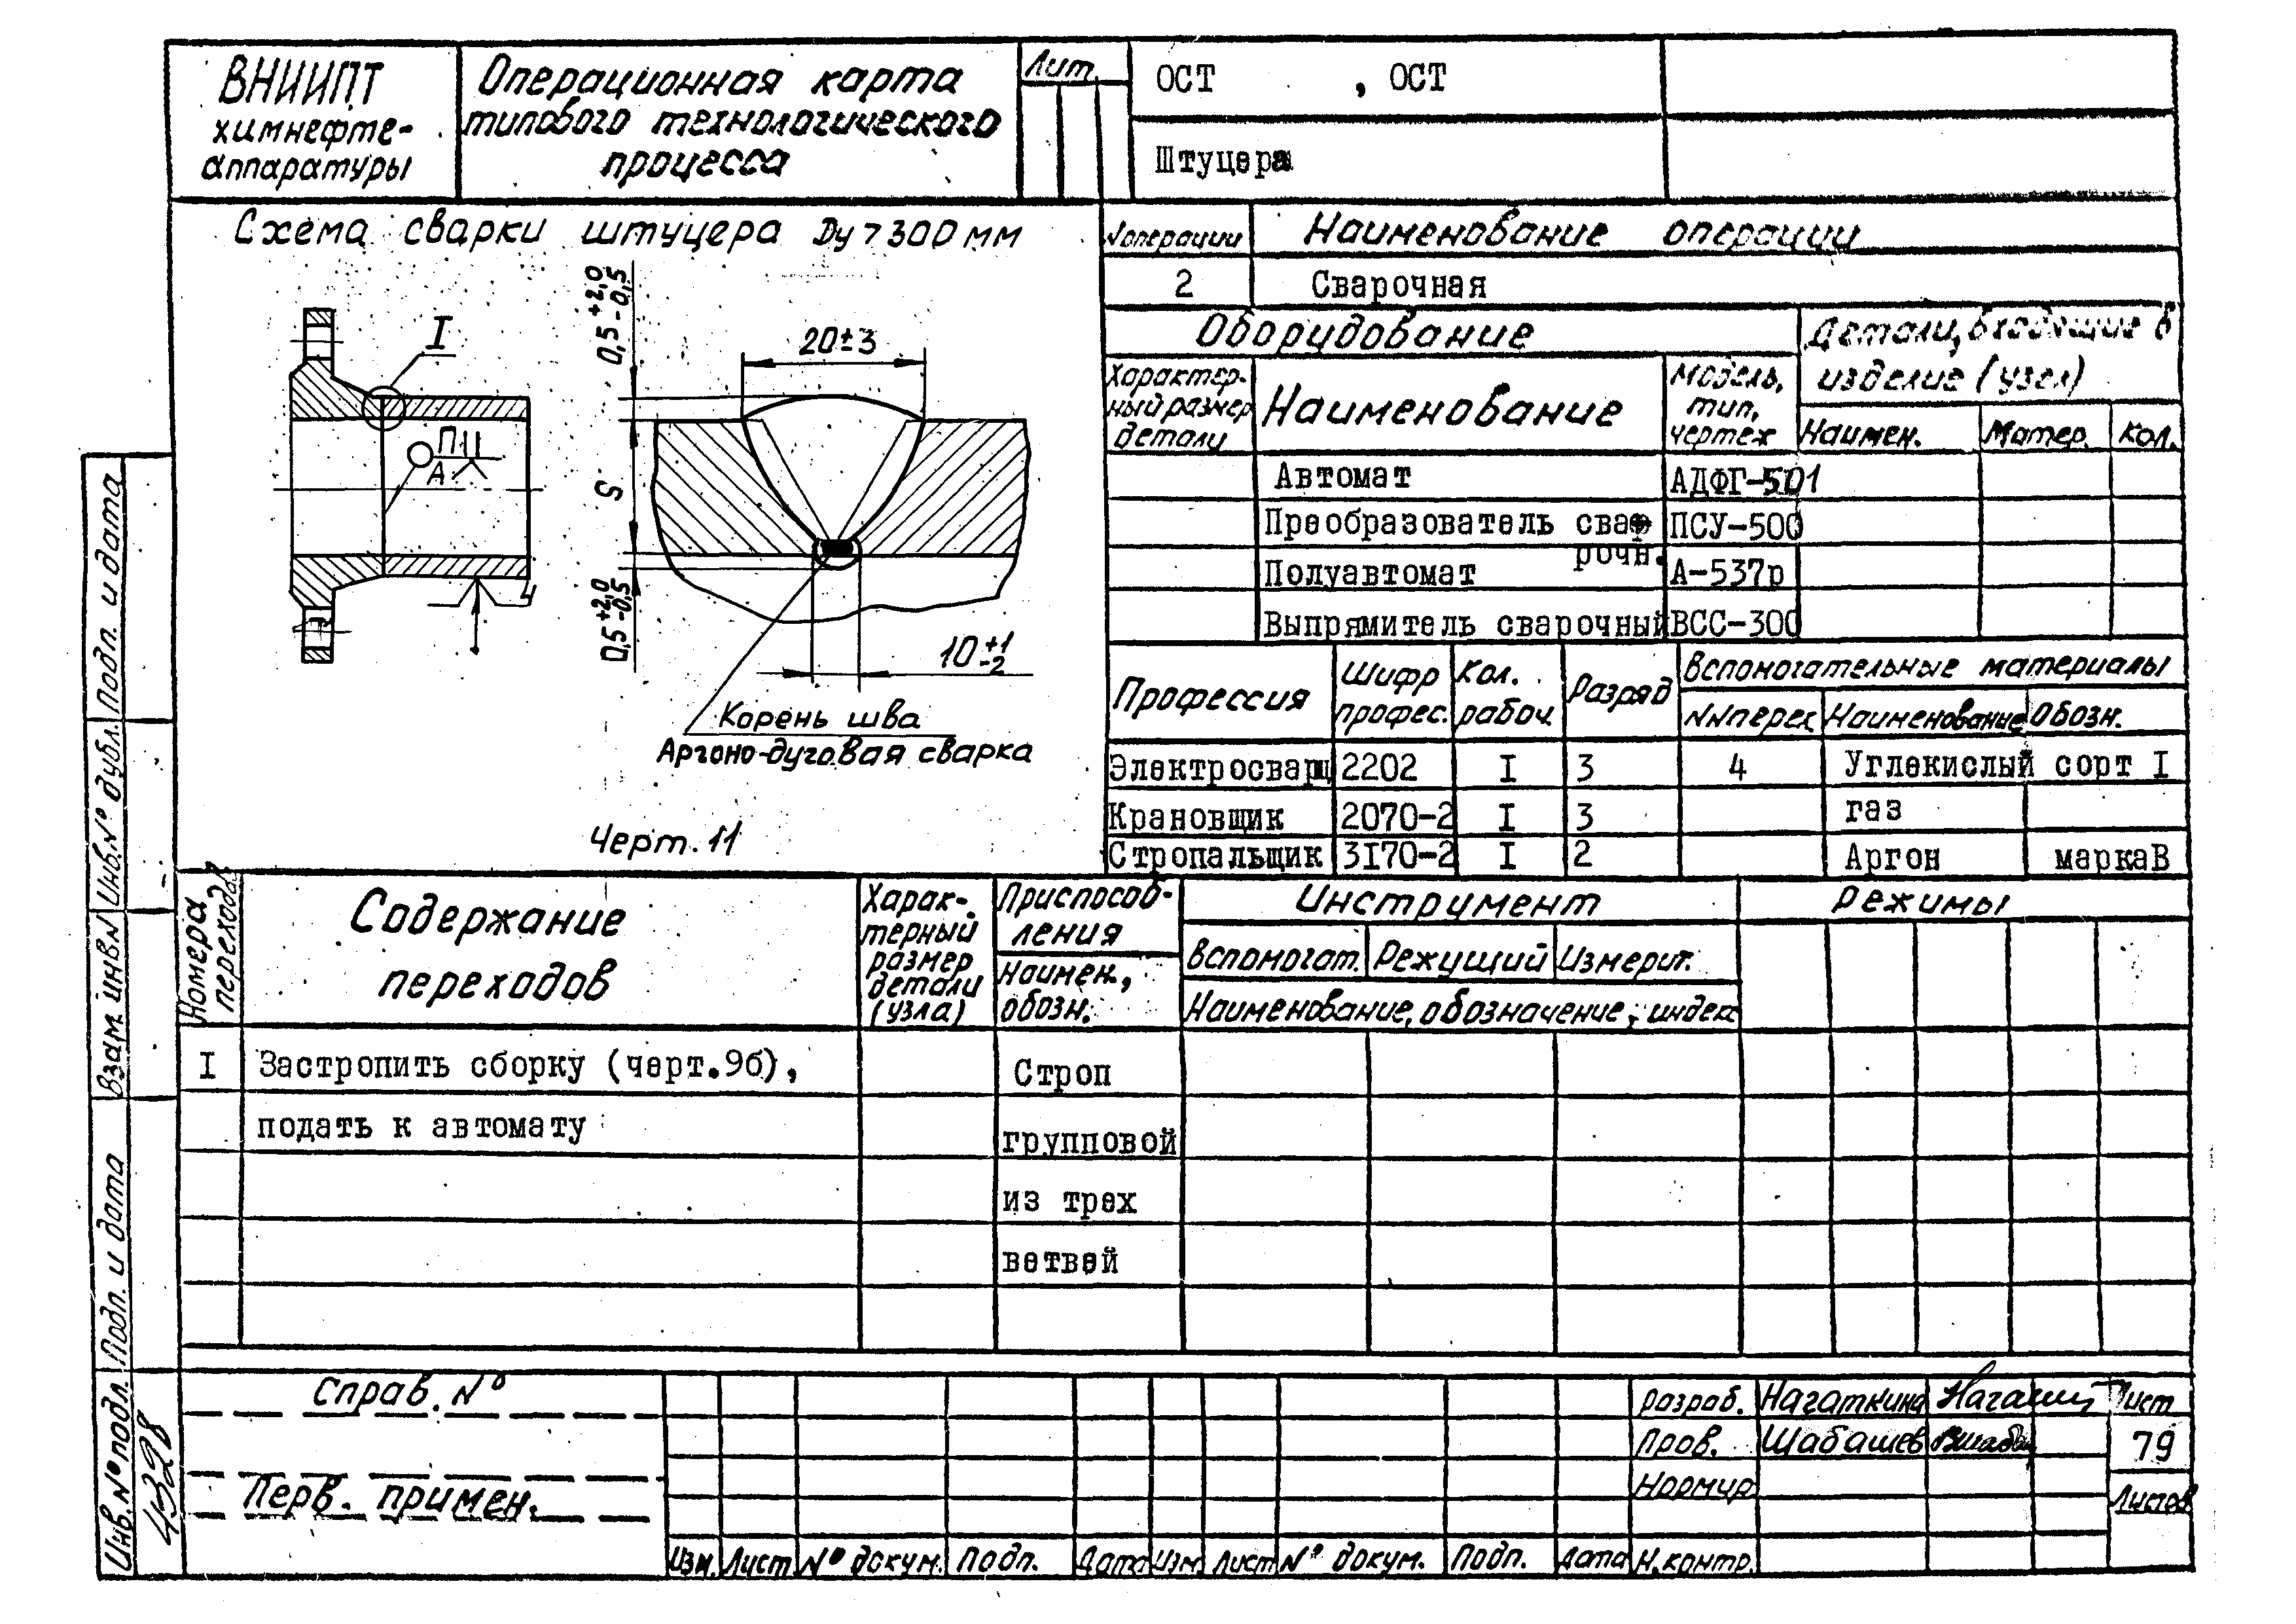 ВНИИПТ
химнефте-
аппаратуры
Операционная карта
типового технологического
процесса
Лит
ОСТ , ОСТ
Штуцера
Схема сварки штуцера Ду>300мм
I
ПЦ
А
0,5 +2,0 -0,5
20±3
S
0,5 +2,0 -0,5
10 +1 -2
Корень шва
Аргоно-дуговая сварка
Черт. 11
N операции
Наименование операции
2
Сварочная
Оборудование
Детали, входящие в
изделие (узел)
Характер-
ный размер
детали
Наименование
Модель,
тип,
чертеж
Наимен.
Матер.
Кол.
Автомат АДФГ-501
Преобразователь сва- ПСУ-500
рочн.
Полуавтомат А-537р
Выпрямитель сварочный ВСС-300
Профессия
Шифр
профес.
Кол.
рабоч.
Разряд
Вспомогательные материалы
NN перех
Наименование
Обозн.
Электросварщ 2202 I 3 4 Углекислый сорт I
газ
Крановщик 2070-2 I 3
Стропальщик 3I70-2 I 2 Аргон маркаВ
Номера
переходов
Содержание
переходов
Харак-
терный
размер
детали
(узла)
Приспособ-
ления
Наимен.,
обозн.
Инструмент
Вспомогат.
Режущий
Измерит.
Наименование, обозначение, индекс
Режимы
I Застропить сборку (черт.9б), Строп
подать к автомату групповой
из трех
ветвей
Справ. N°
Перв. примен.
Изм. Лист N° докум. Подп. Дата Изм Лист N° докум. Подп. Дата
Разраб. Нагаткина
Пров. Шабашев
Нормир
Н.контр.
Лист
79
Листов
Подп. и дата
Инв.N° дубл.
Взам. инв N
Подп. и дата
Инв. N° подл.
4328